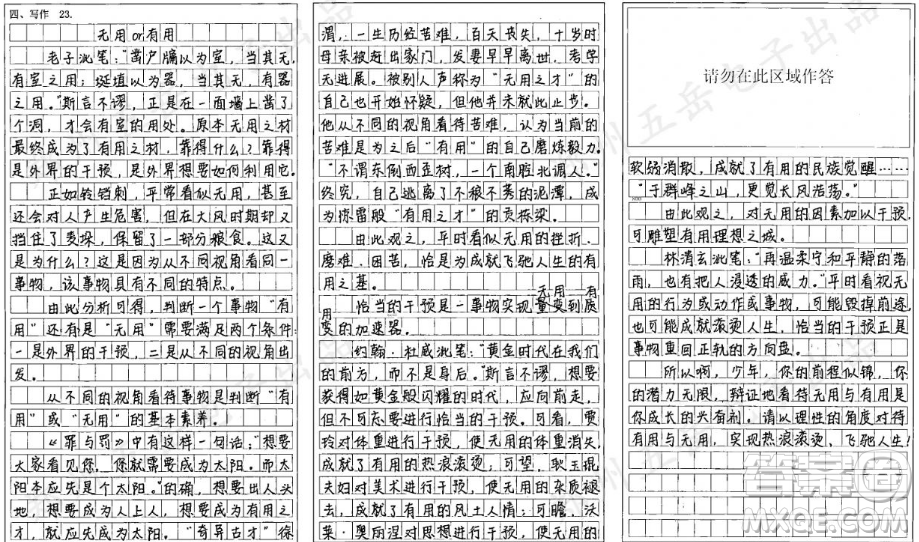 四、写作 23.
无用 or 有用
老子泚笔："凿户牖以为室，当其无，
有室之用；埏埴以为器，当其无，有器
之用。"斯言不谬，正是在一面墙上凿了
个洞，才会有室的用处。原本无用之材
最终成为了有用之材，靠得什么？靠得
是外界的干预，是外界想要如何利用它。
正如铃铛刺，平常看似无用，甚至
还会对人产生危害，但在大风时期却又
挡住了麦垛，保留了一部分粮食。这又
是为什么？这是因为从不同视角看同一
事物，该事物具有不同的特点。
由此分析可得，判断一个事物"有
用"还有是"无用"需要满足两个条件：
一是外界的干预，二是从不同的视角出
发。
从不同的视角看待事物是判断"有
用"或"无用"的基本素养。
《罪与罚》中有这样一句话："想要
大家看见您，您就需要成为太阳。而太
阳本应先是个太阳。"的确，想要出人头
地，想要成为人上人，想要成为有用之
才，就应先成为太阳。"奇异古才"徐
渭，一生历经苦难，百天丧失，十岁时
母亲被赶出家门，发妻早早离世，考学
无进展。被别人声称为"无用之才"的
自己也开始怀疑，但他并未就此止步。
他从不同的视角看待苦难，认为当前的
苦难是为之后"有用"的自己磨炼毅力。
"不谓东倒西歪树，一个南腔北调人。"
终究，自己逃离了不稂不莠的泥潭，成
为你雷般"有用之才"的贡栋梁。
由此观之，平时看似无用的挫折、
磨难、困苦，恰是为成就飞驰人生的有
用之基。
恰当的干预是一事物实现无用—有用量变到质
变的加速器。
约翰·杜威泚笔："黄金时代在我们
的前方，而不是身后。"斯言不谬，想要
获得如黄金般闪耀的时代，应向前走，
但不可忘要进行恰当的干预。可看，贾
玲对体重进行干预，使无用的体重消失，
成就了有用的热浪滚烫；可望，耿玉琨
夫妇对美术进行干预，使无用的杂质褪
去，成就了有用的风土人情；可瞻，沃
莱·奥丽涅对思想进行干预，使无用的
请勿在此区域作答
软弱消散，成就了有用的民族觉醒……
"于群峰之山，更觉长风浩荡。"
由此观之，对无用的因素加以干预，
可雕塑有用理想之城。
林清玄泚笔："再温柔宁和平静的落
雨，也有把人浸透的威力。"平时看视无
用的行为或动作或事物，可能毁掉前途，
也可能成就滚烫人生，恰当的干预正是
事物重回正轨的方向盘。
所以啊，少年，你的前程似锦，你
的潜力无限，辩证地看待无用与有用是
你成长的必有利。请以理性的角度对待
有用与无用，实现热浪滚烫、飞驰人生！
答案圈
MXQE.COM